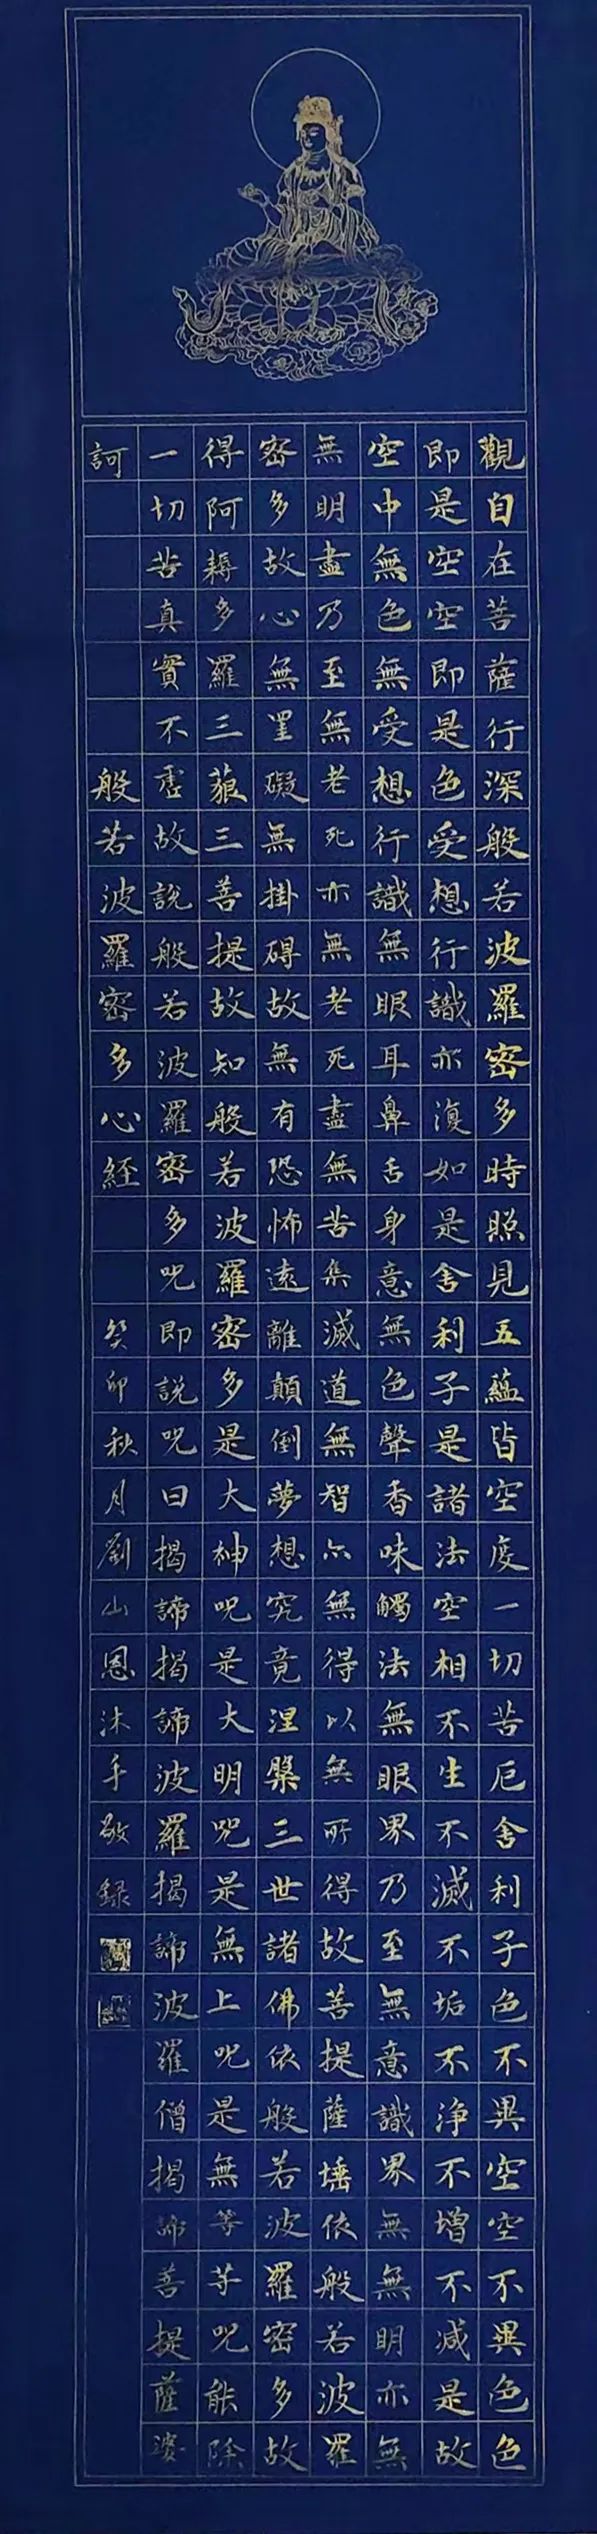 觀自在菩薩行深般若波羅密多時照見五蘊皆空度一切苦厄舍利子色不異空空不異色色
即是空空即是色受想行識亦復如是舍利子是諸法空相不生不滅不垢不浄不增不减是故
空中無色無受想行識無眼耳鼻舌身意無色聲香味觸法無眼界乃至無意識界無無明亦無
無明盡乃至無老死亦無老死盡無苦集滅道無智亦無得以無所得故菩提薩埵依般若波羅
密多故心無罣礙無掛碍故無有恐怖遠離顛倒夢想究竟涅槃三世諸佛依般若波羅密多故
得阿耨多羅三藐三菩提故知般若波羅密多是大神呪是大明呪是無上呪是無等等呪能除
一切苦真實不虛故說般若波羅密多呪即說呪曰揭諦揭諦波羅揭諦波羅僧揭諦菩提薩婆
訶 般若波羅密多心經 癸卯秋月劉山恩沐手敬録